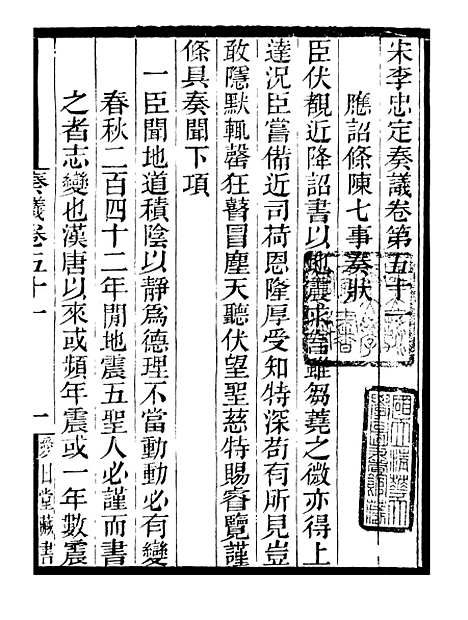 宋李忠定奏議卷第五十一
應詔條陳七事奏狀
臣伏覩近降詔書以地震求言雖芻蕘之微亦得上
達況臣嘗備近司荷恩隆厚受知特深苟有所見豈
敢隱默輒罄狂瞽冒塵天聽伏望聖慈特賜睿覽謹
條具奏聞下項
一臣聞地道積陰以靜爲德理不當動動必有變
春秋二百四十二年閒地震五聖人必謹而書
之者志變也漢唐以來或頻年震或一年數震
奏議卷五十一
一
愛日堂藏書